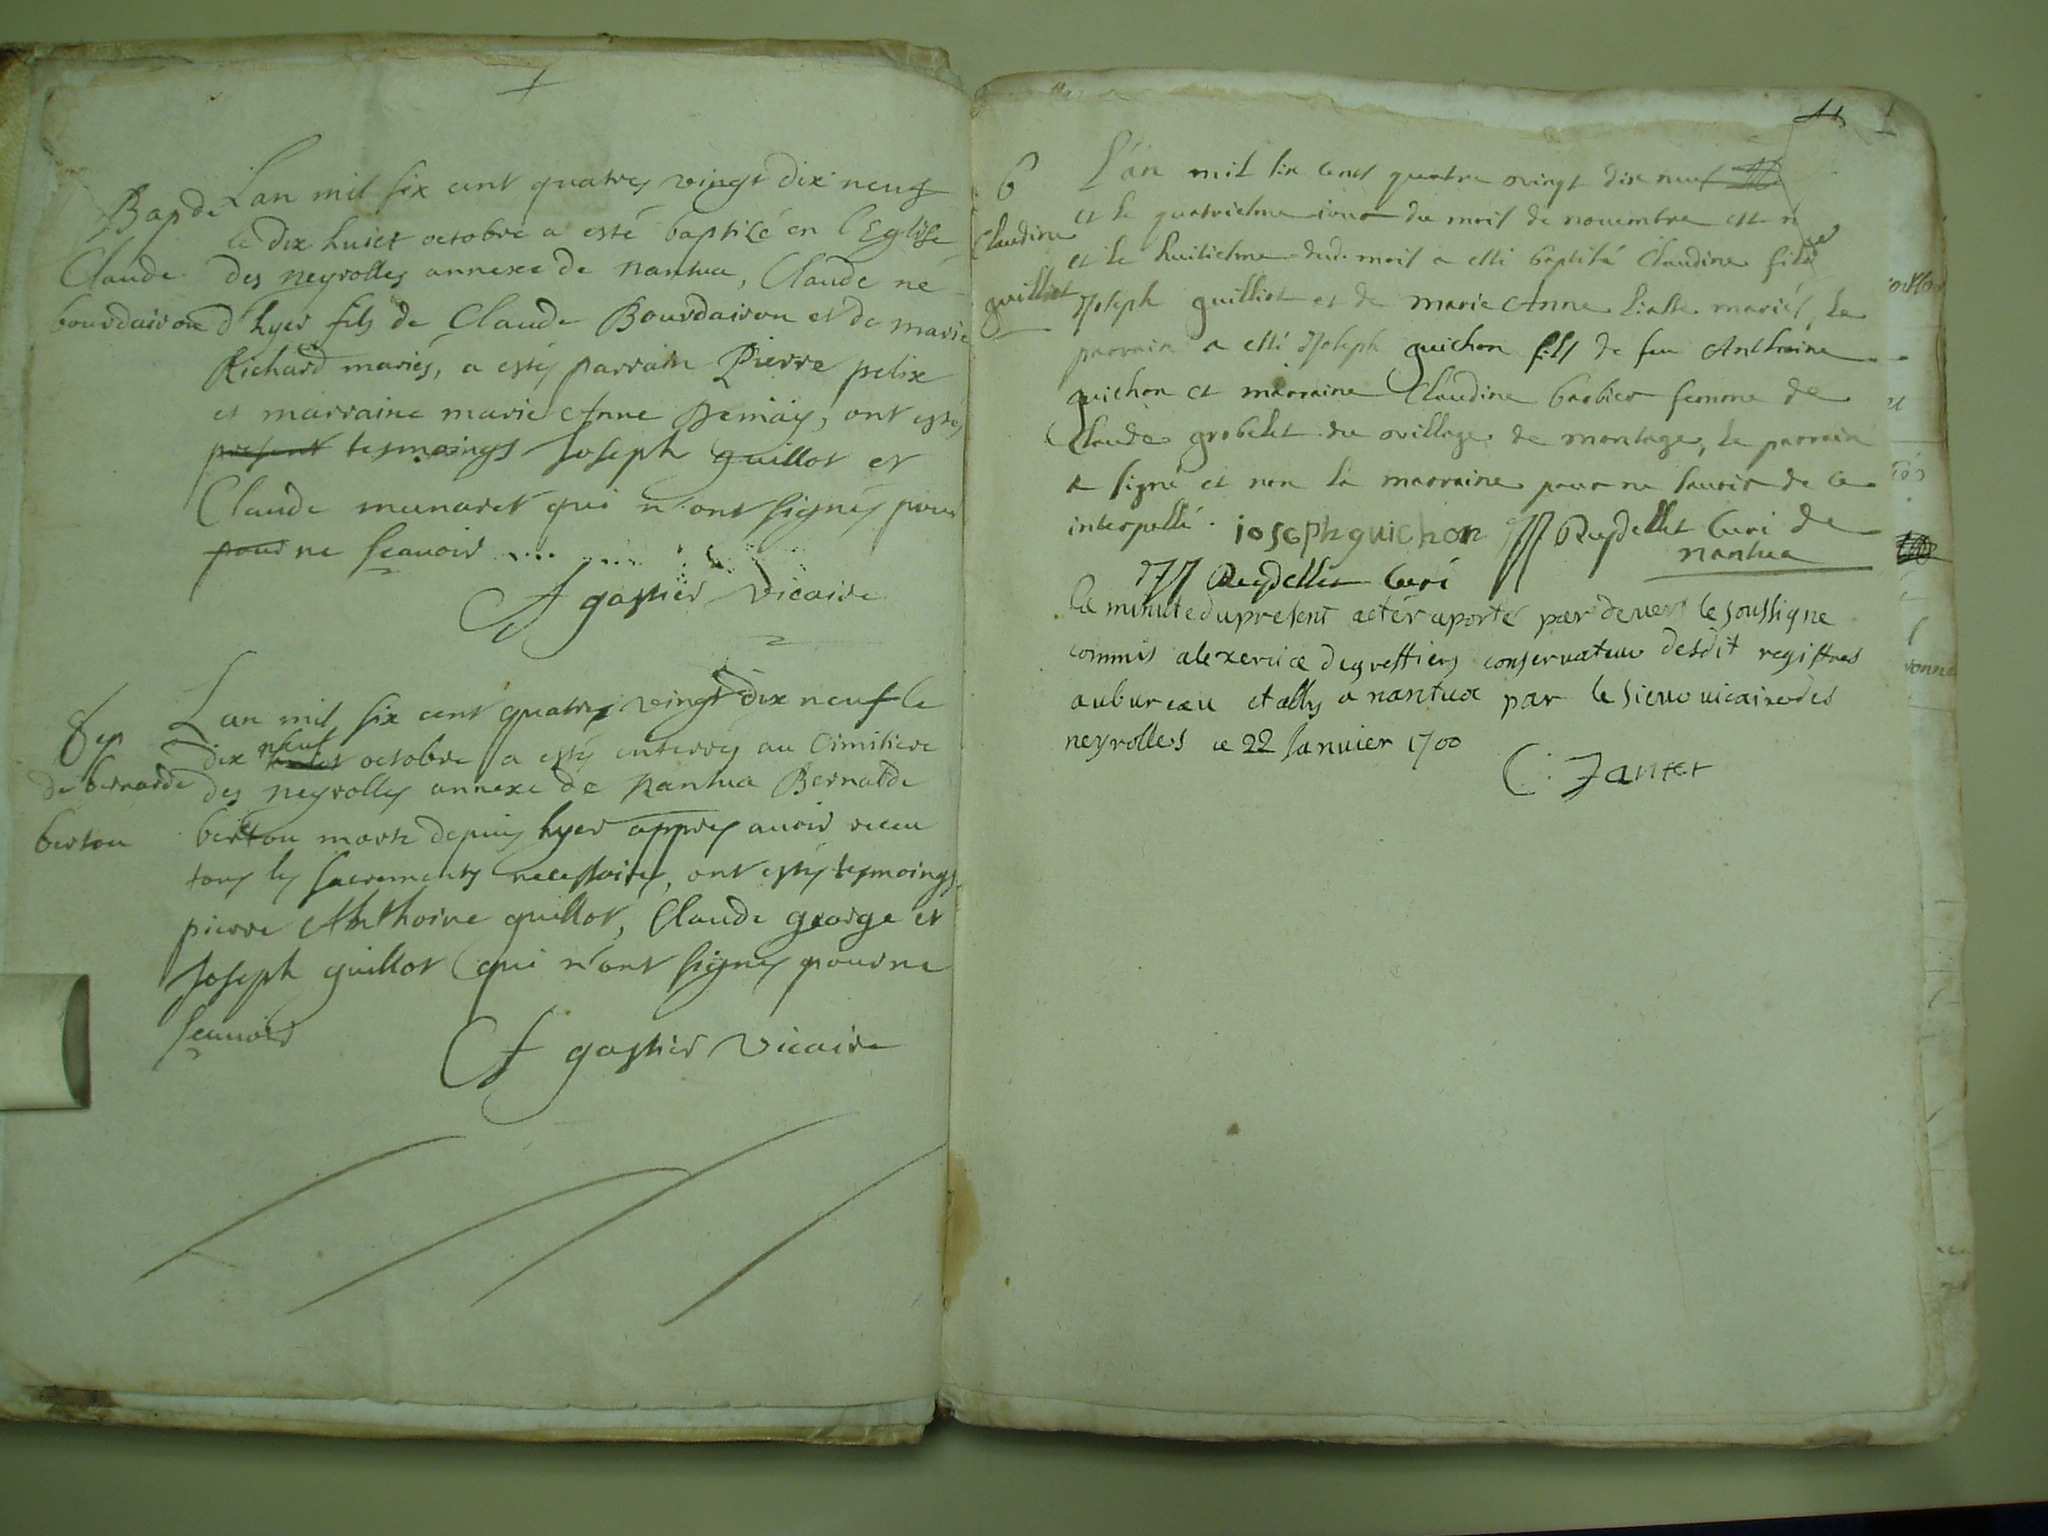 Bap de
Claude
bourdairon
Lan mil six cent quatres vingt dix neuf
le dix huict octobre a esté baptizé en l'Eglise
des neyrolles annexe de nantua, Claude né
d'hyer fils de Claude Bourdairon et de marie
Richard mariés, a estés parrain Pierre pelix
et marraine marie Anne Demiay, ont estés
present tesmoings Joseph guillot et
Claude munaret qui n'ont signés pour
pour ne scauoir
A gassier vicaire
Sep
de bernarde
berton
Lan mil six cent quatres vingt dix neuf le
dix neuf octobre a estés enterrés au Cimitiere
des neyrolles annexe de nantua Bernarde
berton morte depuis hyer appres auoir receu
tous les sacrements necessaires, ont estés tesmoings
pierre Anthoine guillot, Claude george et
Joseph guillot qui n'ont signés pour ne
scauoir
A gassier vicaire
6
Claudine
guilliot
L'an mil six cent quatre vingt dix neuf
et le quatriesme iour du mois de novembre est n
et le huitiesme dud. mois a esté baptisé Claudine fille
Joseph guilliot et de marie Anne liasse mariés, le
parrain a esté Joseph guichon fils de feu Anthoine
guichon et marraine Claudine barbier femme de
Claude grobelet du village de montage, le parrain
a signé et non la marraine pour ne sauoir de ce
interpellé. ioseph guichon Reydellet Curé de
nantua
Reydellet Curé
La minute du present acte raporté par deuers le soussigne
commis alexercice de greffiers conseruateur desdit registres
aubureau etably a nantua par le sieur uicaire des
neyrolles ce 22 Januier 1700
C. Jantet